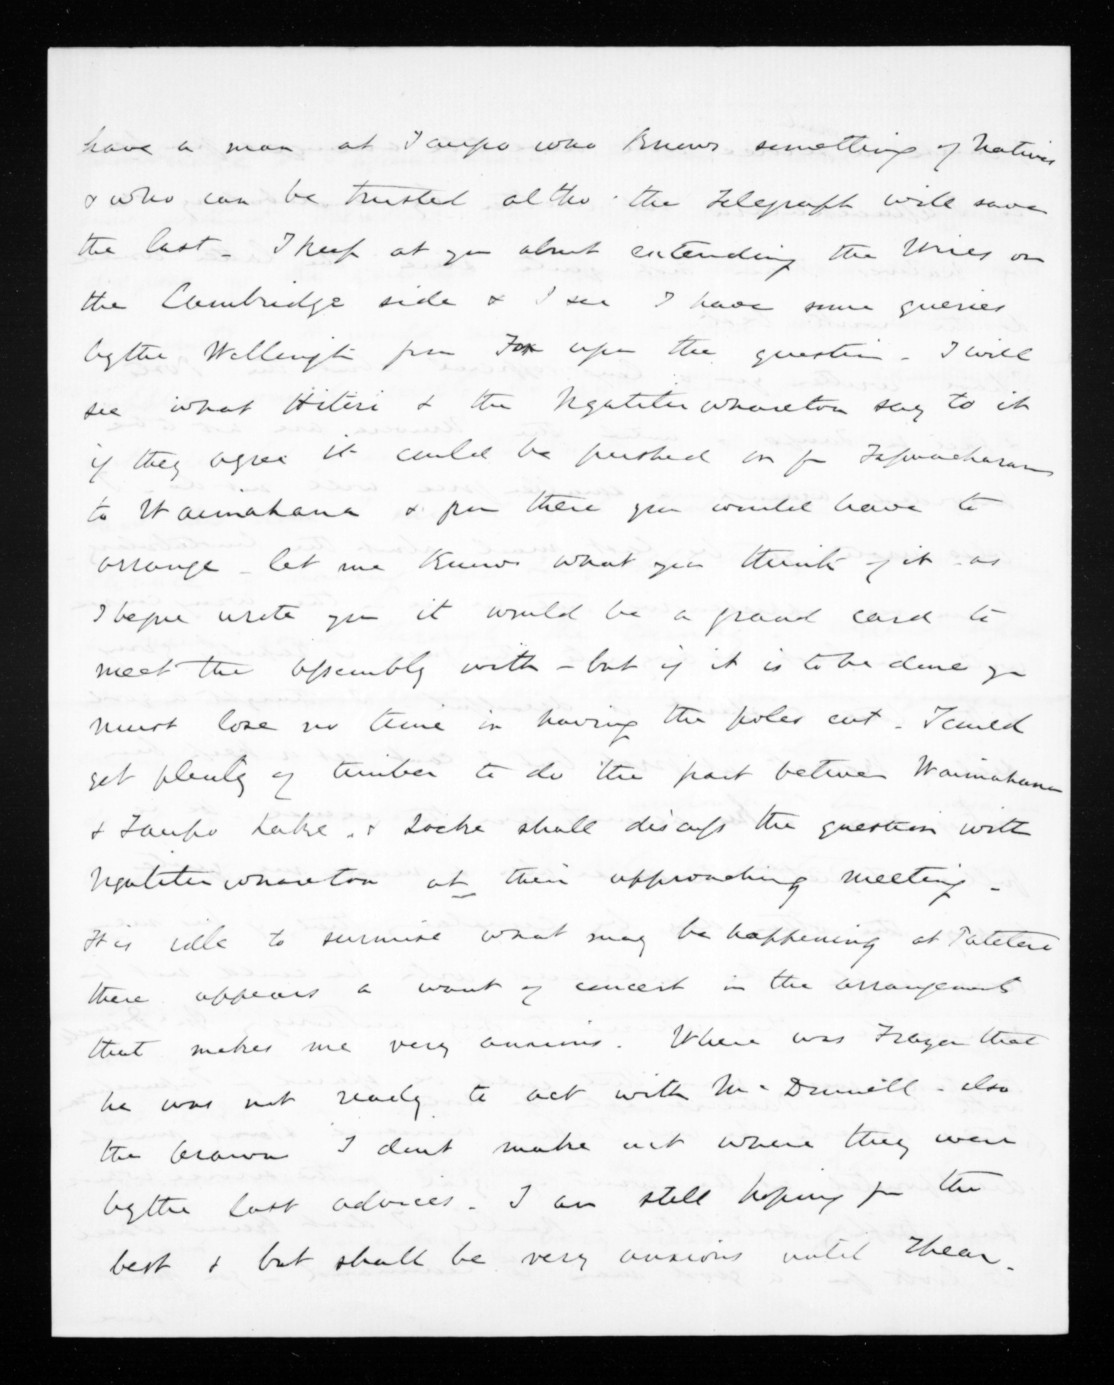 have a man at Taupo who knows something of Natives
& who can be trusted altho' the Telegraph will save
the last - I keep at you about extending the Wires on
the Cambridge side & I see I have some queries
by the Wellington from Fox upon the question - I will
see what Hitiri & the Ngatitewharetoa say to it
if they agree it could be pushed on fm Tapuaeharuru
to Waimahana & from there you would have to
arrange - let me know what you think of it - as
I before wrote you it would be a grand card to
meet the Assembly with - but if it is to be done you
must lose no time in having the poles cut - I could
get plenty of timber to do the part between Waimahana
& Taupo Lake - & Locke shall discuss the question with
Ngatitewharetoa at their approaching meeting -
It is idle to surmise what may be happening at Patetere
there appears a want of concert in the arrangements
that makes me very anxious. Where was Frazer that
he was not ready to act with McDonnell - also
the Arawa I dont make out where they were
by the last advices - I am still hoping for the
best & but shall be very anxious until I hear -